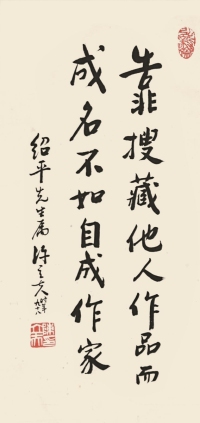 靠搜藏他人作品而
成名不如自成作家
绍平先生属